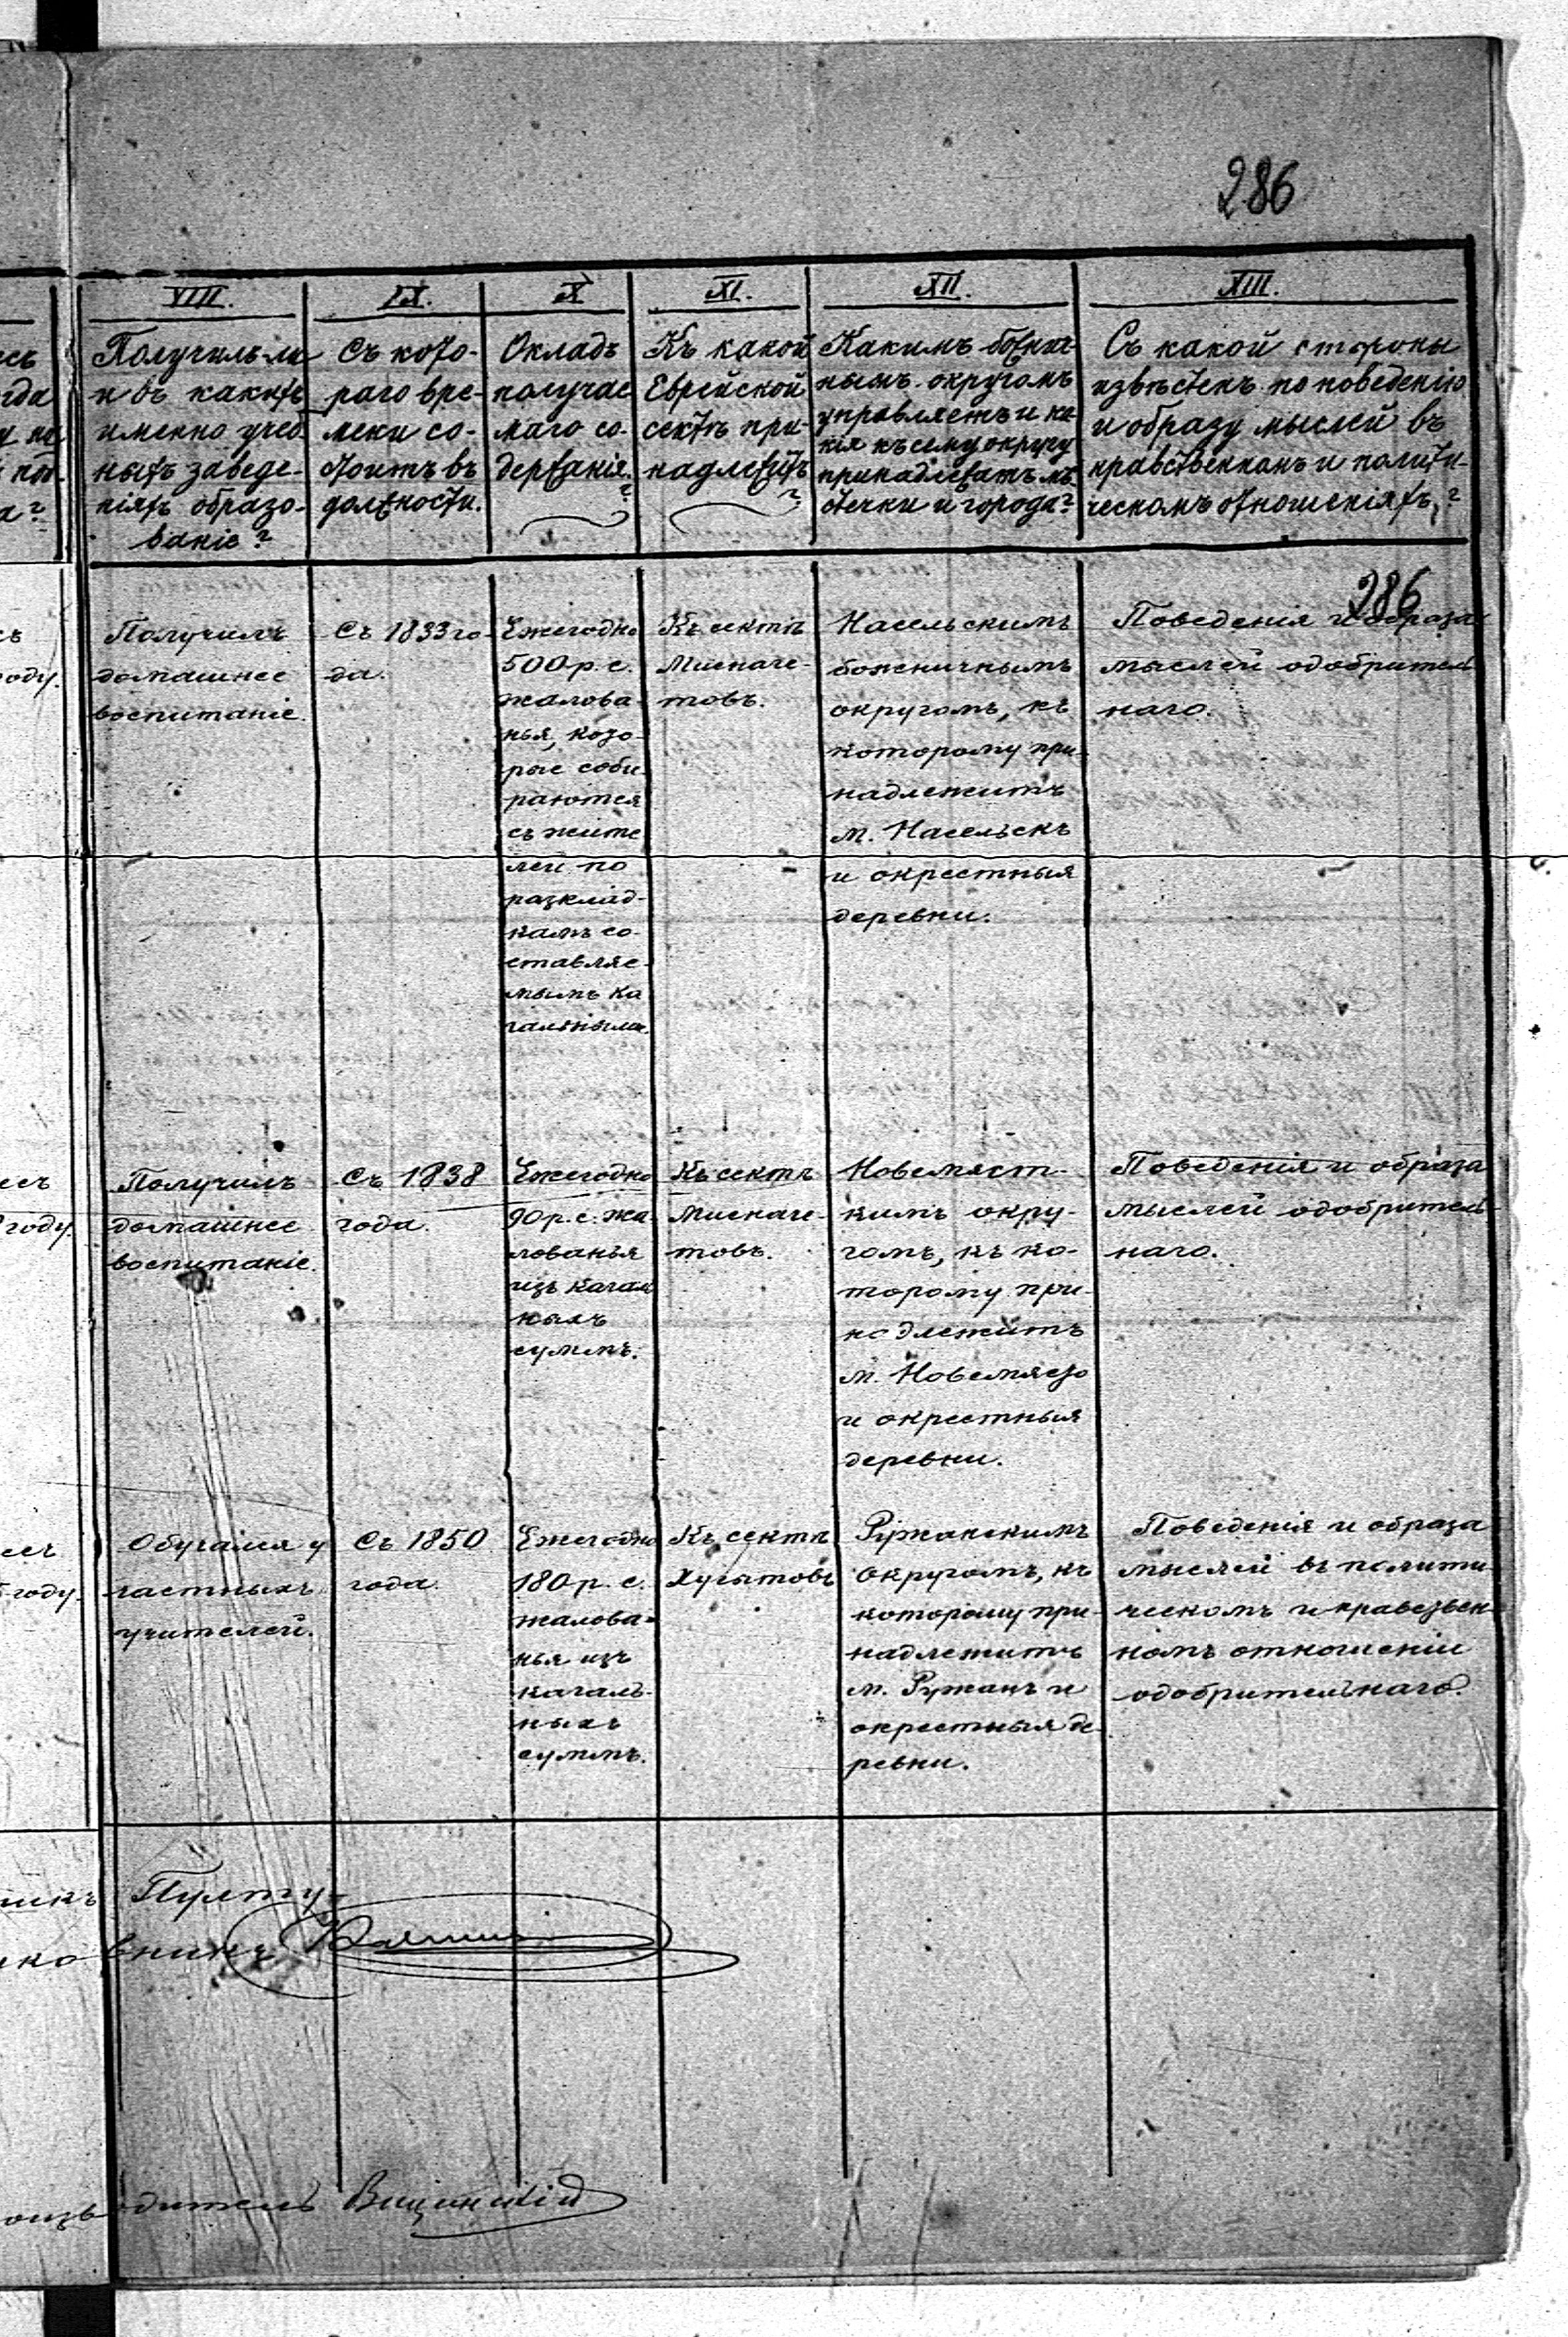 286
VIII.
Получилъ-ли
и въ какихъ
именно учеб
ныхъ заведе-
ніяхъ образо-
ваніе?
IX.
Съ кото-
раго вре-
мени со-
стоитъ въ
должности.
X
Окладъ
получае
маго со-
держанія?
XI.
Къ какой
Еврейской
сектѣ при-
надлежитъ?
XII.
Какимъ божнич
нымъ округомъ
управляетъ и ка
кія къ сему округу
принадлежатъ мѣ
стечки и города?
XIII.
Съ какой стороны
извѣстенъ по поведенію
и образу мыслей въ
нравственномъ и полити-
ческомъ отношеніяхъ?
286
Получилъ
домашнее
воспитаніе.
Съ 1833 го-
да.
Ежегодно
500 р. с.
жалова-
нья, кото-
рые соби-
раются
съ жите
лей по
расклад-
камъ со-
ставляе-
мымъ ка
гальными.
Къ сектѣ
Миснаге-
товъ.
Насельскимъ
божничнымъ
округомъ, къ
которому при-
надлежитъ
м. Насельскъ
и окрестныя
деревни.
Поведенія и образа
мыслей одобритель
наго.
Получилъ
домашнее
воспитаніе.
Съ 1838
года.
Ежегодно
90 р. с. жа-
лованья
изъ кагаль
ныхъ
суммъ.
Къ сектѣ
Миснаге-
товъ.
Новемяст-
кимъ окру-
гомъ, къ ко-
торому при-
надлежитъ
м. Новемясто
и окрестныя
деревни.
Поведенія и образа
мыслей одобритель-
наго.
Обучался у
частныхъ
учителей.
Съ 1850
года.
Ежегодно
180 р. с.
жалова-
нья изъ
кагаль-
ныхъ
суммъ.
Къ сектѣ
Хусытовъ
Ружанскимъ
округомъ, къ
которому при-
надлежитъ
м. Ружанъ и
окрестныя де-
ревни.
Поведенія и образа
мыслей въ полити-
ческомъ и нравствен
номъ отношеніи
одобрительнаго.
Пулту-